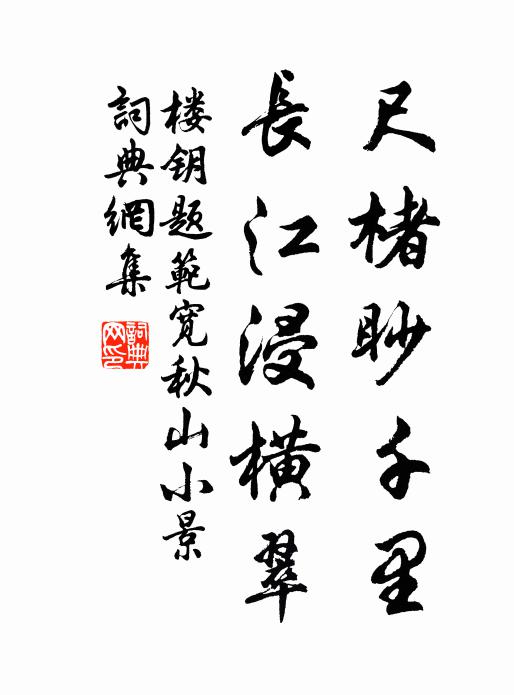 尺楮眇千里
長江浸横翠
楼钥题範寛秋山小景
詞典網集
詞典网印